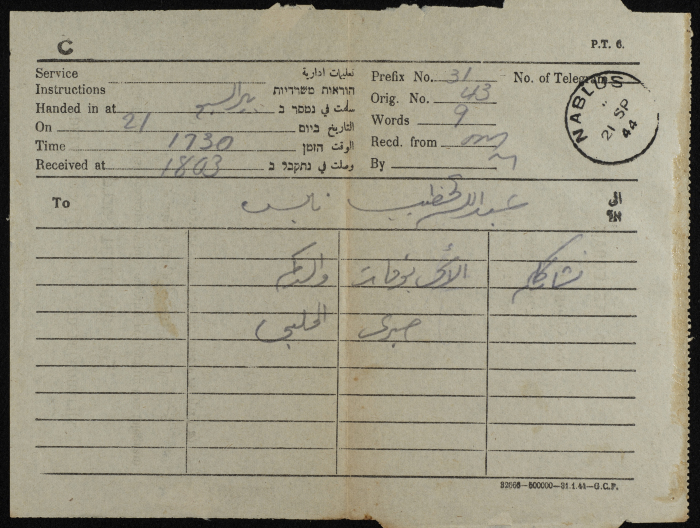 C
P.T. 6.
Service تعليمات ادارية
Instructions הוראות משרדיות
Handed in at بير السبع سلمت في נמסר ב
On 21 التاريخ ביום
Time 1730 الوقت הזמן
Received at 1803 وصلت في נתקבל ב
Prefix No. 31 No. of Telegram
Orig. No. 43
Words 9
Recd. from
By
NABLUS
21 SP
44
To عبد الله الخطيب نابلس الى אל
نشارككم الاسى بوفاة والدكم
صبري الحلبي
32668—500000—31.1.41—G.C.P.